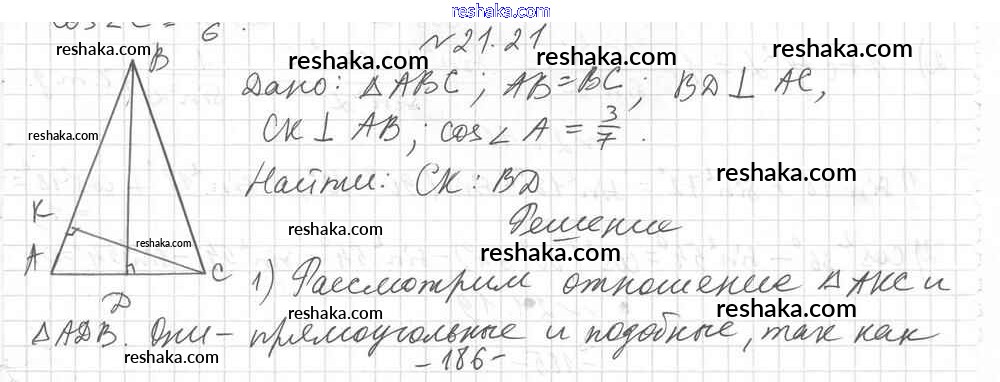 www.reshaka.com
cos∠C = 6.
№21.21
Дано: △ABC; AB=BC; BD⊥AC,
CK⊥AB; cos∠A = 3/7.
Найти: CK:BD
Решение
1) Рассмотрим отношение △AKC и
△ADB. Они - прямоугольные и подобные, так как
-186-
B
K
A
D
C
reshaka.com
reshaka.com
reshaka.com
reshaka.com
reshaka.com
reshaka.com
reshaka.com
reshaka.com
reshaka.com
reshaka.com
reshaka.com
reshaka.com